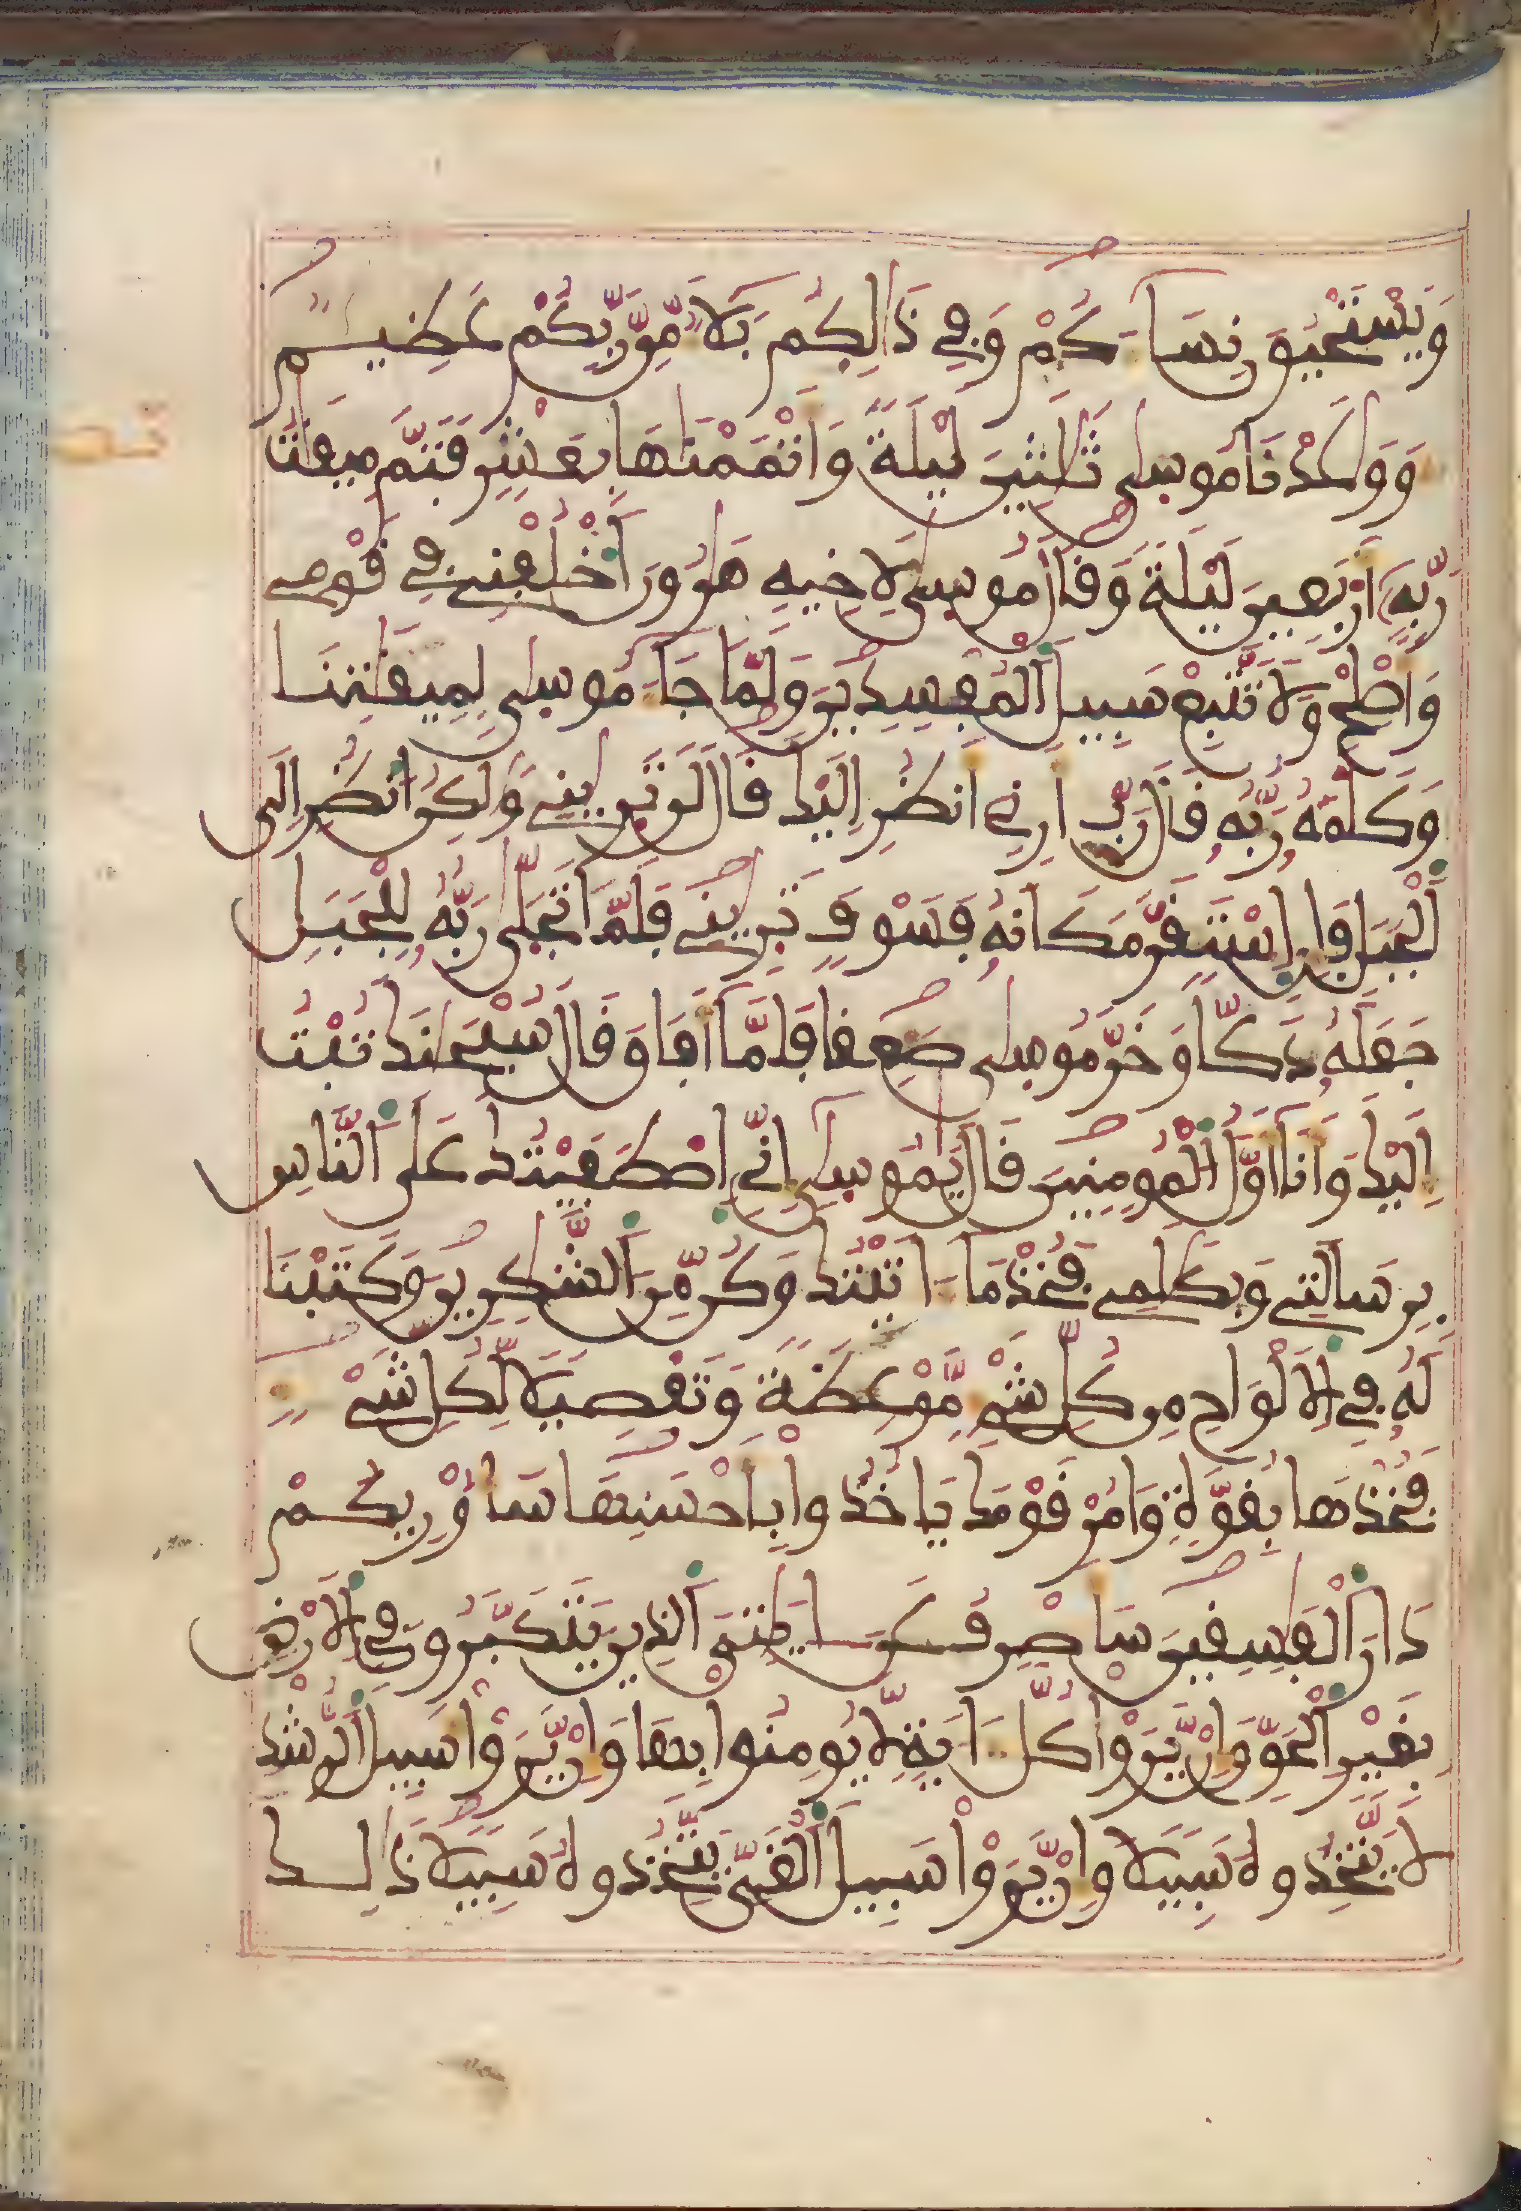 وَيَسْتَحْيُونَ نِسَآءَكُمْ وَفِي ذَٰلِكُم بَلَآءٌ مِّن رَّبِّكُمْ عَظِيمٌ
وَوَٰعَدْنَا مُوسَىٰ ثَلَٰثِينَ لَيْلَةً وَأَتْمَمْنَٰهَا بِعَشْرٍ فَتَمَّ مِيقَٰتُ
رَبِّهِۦٓ أَرْبَعِينَ لَيْلَةً وَقَالَ مُوسَىٰ لِأَخِيهِ هَٰرُونَ ٱخْلُفْنِي فِي قَوْمِي
وَأَصْلِحْ وَلَا تَتَّبِعْ سَبِيلَ ٱلْمُفْسِدِينَ وَلَمَّا جَآءَ مُوسَىٰ لِمِيقَٰتِنَا
وَكَلَّمَهُۥ رَبُّهُۥ قَالَ رَبِّ أَرِنِيٓ أَنظُرْ إِلَيْكَ قَالَ لَن تَرَىٰنِي وَلَٰكِنُ ٱنظُرْ إِلَى
ٱلْجَبَلِ فَإِنِ ٱسْتَقَرَّ مَكَانَهُۥ فَسَوْفَ تَرَىٰنِي فَلَمَّا تَجَلَّىٰ رَبُّهُۥ لِلْجَبَلِ
جَعَلَهُۥ دَكّاً وَخَرَّ مُوسَىٰ صَعِقاً فَلَمَّآ أَفَاقَ قَالَ سُبْحَٰنَكَ تُبْتُ
إِلَيْكَ وَأَنَآ أَوَّلُ ٱلْمُومِنِينَ قَالَ يَٰمُوسَىٰٓ إِنِّي ٱصْطَفَيْتُكَ عَلَى ٱلنَّاسِ
بِرِسَالَتِي وَبِكَلَٰمِي فَخُذْ مَآ ءَاتَيْتُكَ وَكُن مِّنَ ٱلشَّٰكِرِينَ وَكَتَبْنَا
لَهُۥ فِي ٱلْأَلْوَاحِ مِن كُلِّ شَيْءٍ مَّوْعِظَةً وَتَفْصِيلًا لِّكُلِّ شَيْءٍ
فَخُذْهَا بِقُوَّةٍ وَامُرْ قَوْمَكَ يَاخُذُوا بِأَحْسَنِهَا سَأُوْرِيكُمْ
دَارَ ٱلْفَٰسِقِينَ سَأَصْرِفُ عَنَ ايَٰتِيَ ٱلَّذِينَ يَتَكَبَّرُونَ فِي ٱلْأَرْضِ
بِغَيْرِ ٱلْحَقِّ وَإِنْ يَّرَوْا كُلَّ ءَايَةٍ لَّا يُومِنُوا بِهَا وَإِنْ يَّرَوْا سَبِيلَ ٱلرُّشْدِ
لَا يَتَّخِذُوهُ سَبِيلًا وَإِنْ يَّرَوْا سَبِيلَ ٱلْغَيِّ يَتَّخِذُوهُ سَبِيلًا ذَٰلِكَ